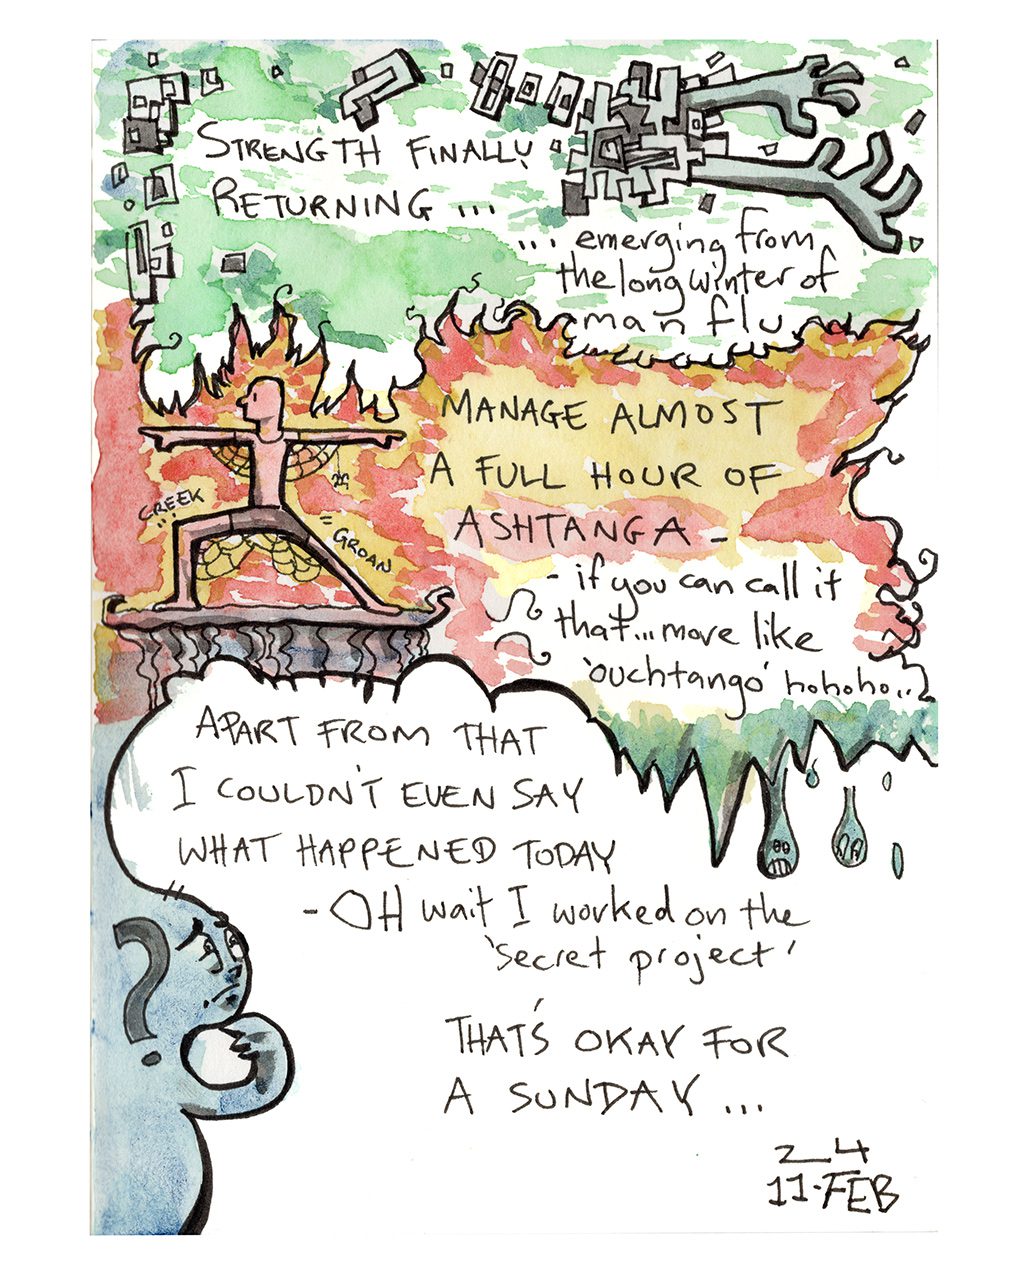 STRENGTH FINALLY
RETURNING ...
... emerging from
the long winter of
man flu
MANAGE ALMOST
A FULL HOUR OF
ASHTANGA -
CREEK
GROAN
- if you can call it
that... more like
'ouchtango' hohoho..
APART FROM THAT
I COULDN'T EVEN SAY
WHAT HAPPENED TODAY
- OH wait I worked on the
'secret project'
THAT'S OKAY FOR
A SUNDAY ...
24
11·FEB